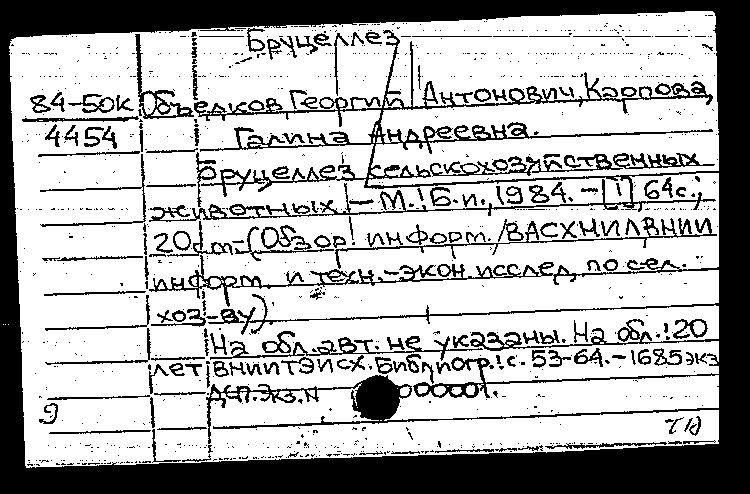 Бруцеллез
84-50к Объедков, Георгий Антонович, Карпова,
4454 Галина Андреевна.
Бруцеллез сельскохозяйственных
животных. - М.: Б.и., 1984. - [1], 64с.;
20см. - (Обзор. информ. / ВАСХНИЛ, ВНИИ
информ. и техн.-экон. исслед. по сел.
хоз-ву).
На обл. авт. не указаны. На обл.: 20
лет ВНИИТЭИСХ. Библиогр.: с. 53-64. - 1685 экз
ДСП. Экз. N 000001.
9